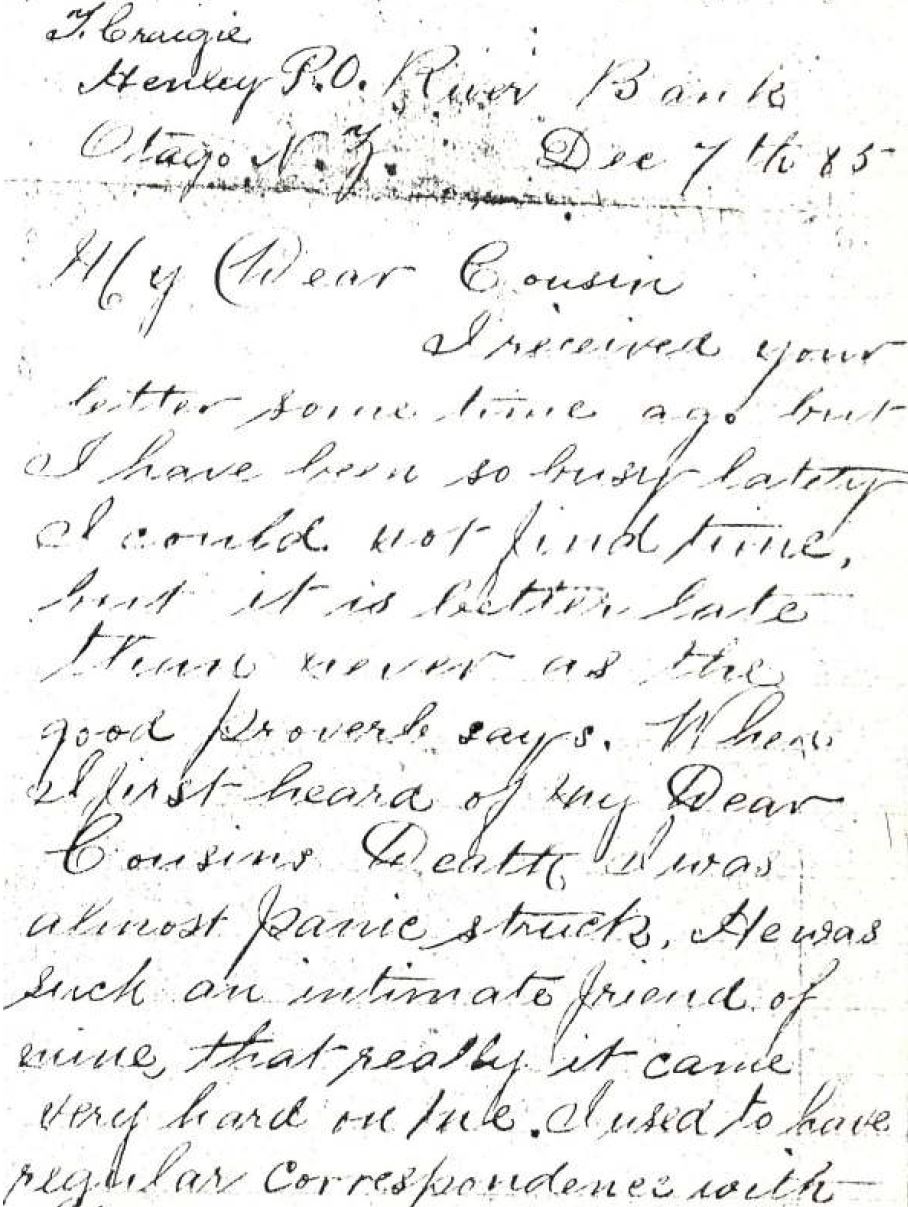 T. Craigie
Henley P.O. River Bank
Otago N.Z. Dec 7th 85
My Dear Cousin
I received your
letter some time ago but
I have been so busy lately
I could not find time,
but it is better late
than never as the
good proverb says. When
I first heard of my Dear
Cousins Death I was
almost panic struck. He was
such an intimate friend of
mine, that really it came
very hard on me. I used to have
regular correspondence with